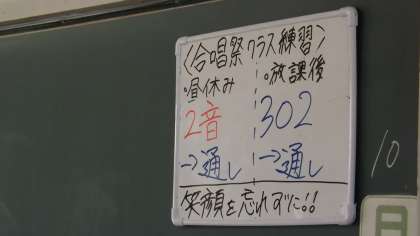 〈合唱祭クラス練習〉
・昼休み ・放課後
2音 302
→通し →通し
笑顔を忘れずに!!
10
日